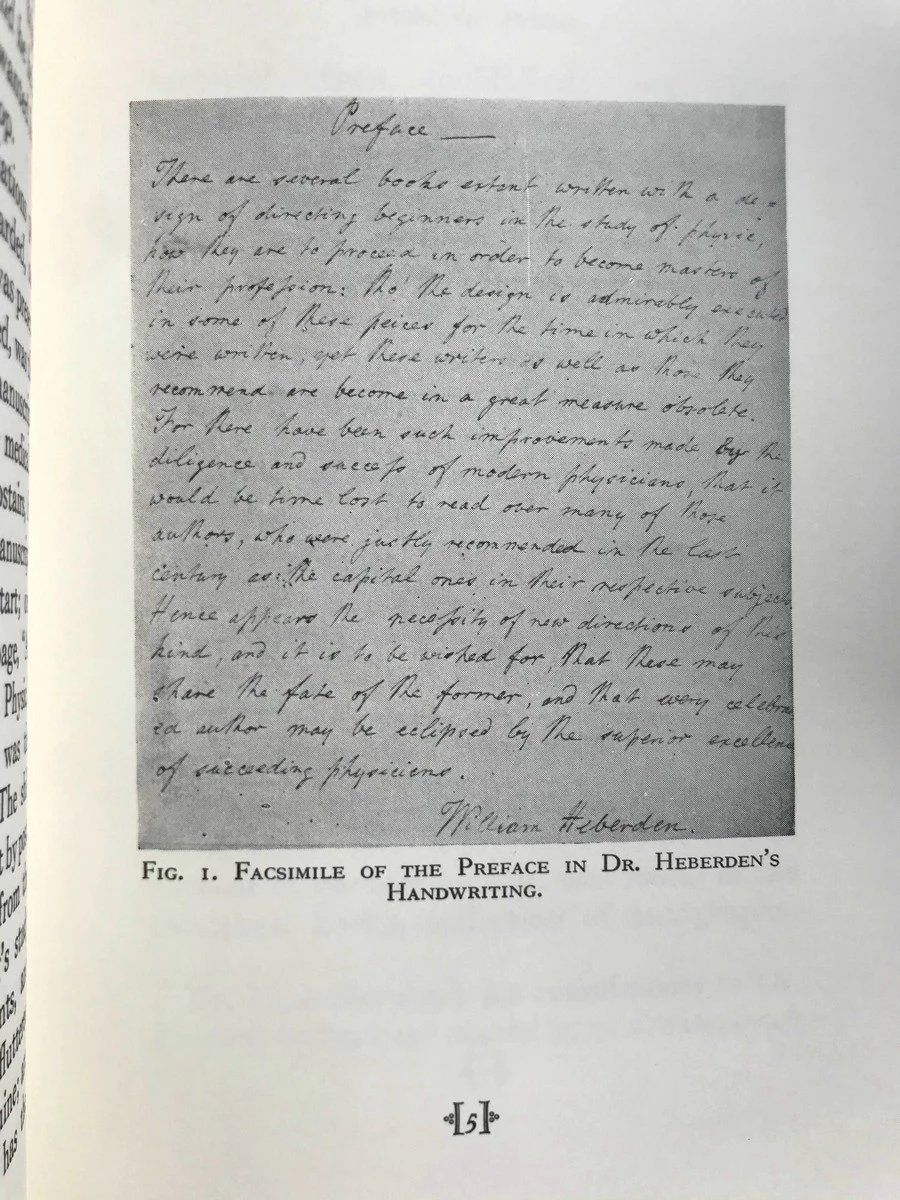 Preface —
There are several books extant written with a de=
sign of directing beginners in the study of physic,
how they are to proceed in order to become masters of
their profession: tho' the design is admirably executed
in some of these peices for the time in which they
were written, yet these writers as well as those they
recommend are become in a great measure obsolete.
For there have been such improvements made by the
diligence and success of modern physicians, that it
would be time lost to read over many of those
authors, who were justly recommended in the last
century as the capital ones in their respective subjects
Hence appears the necessity of new directions of this
kind, and it is to be wished for, that these may
share the fate of the former, and that every celebra
ed author may be eclipsed by the superior excellenc
of succeeding physicians.
William Heberden.
Fig. 1. Facsimile of the Preface in Dr. Heberden's
Handwriting.
[5]